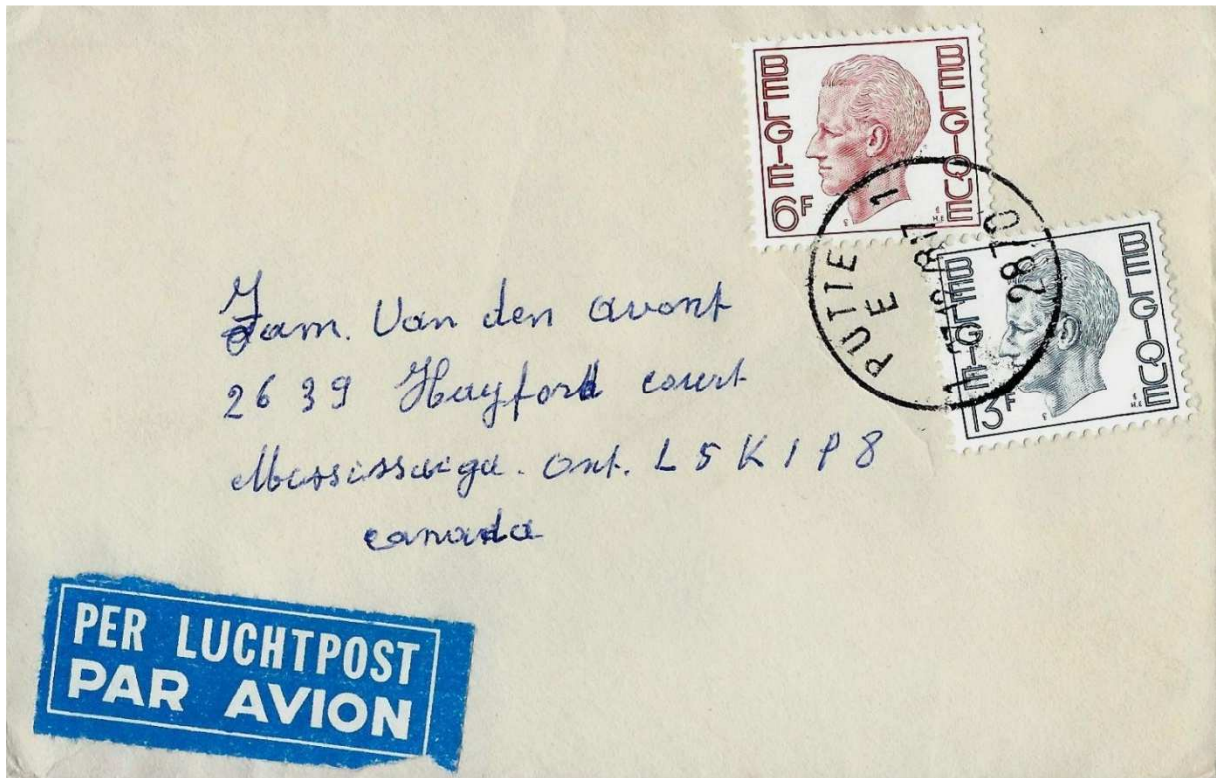 BELGIE BELGIQUE
6F
BELGIE BELGIQUE
13F
PUTTE 1
E
2870
Fam. Van den avont
2639 Hayford court
Mississaiga. Ont. L5K1P8
Canada
PER LUCHTPOST
PAR AVION